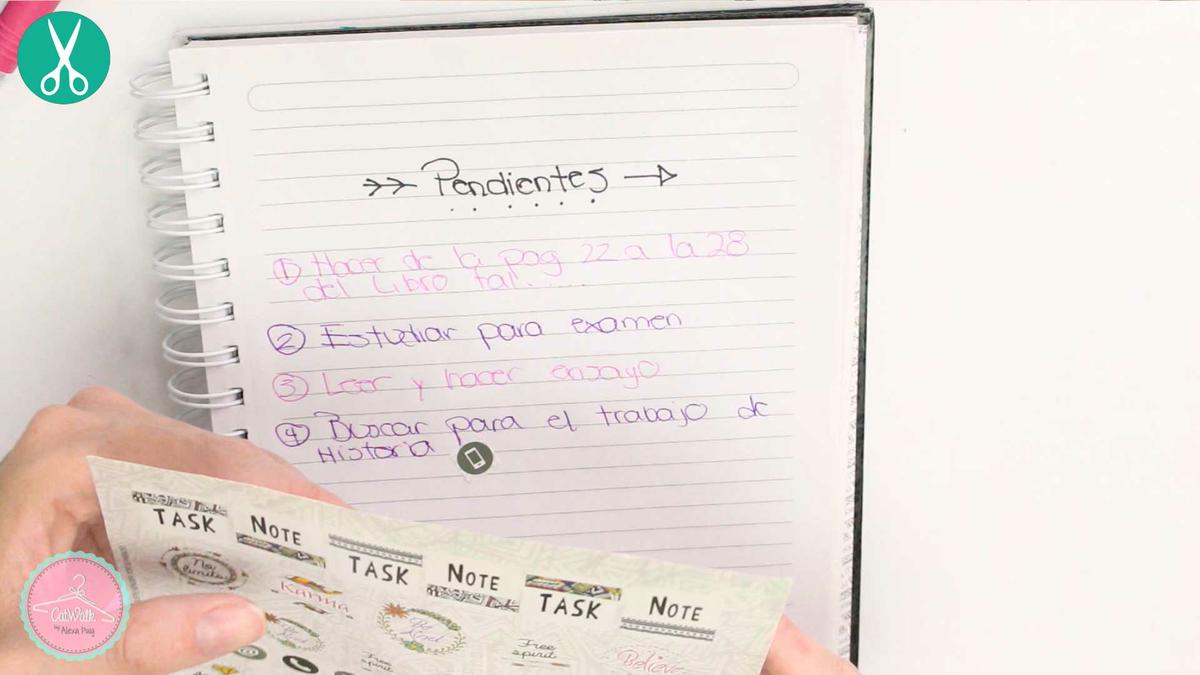 Pendientes
① Hacer de la pag 22 a la 28
del Libro tal.....
② Estudiar para examen
③ Leer y hacer ensayo
④ Buscar para el trabajo de
Historia
TASK NOTE TASK NOTE TASK NOTE
No limits Karma Be Kind Free spirit Believe
Free spirit
CatWalk
by Alexa Puig